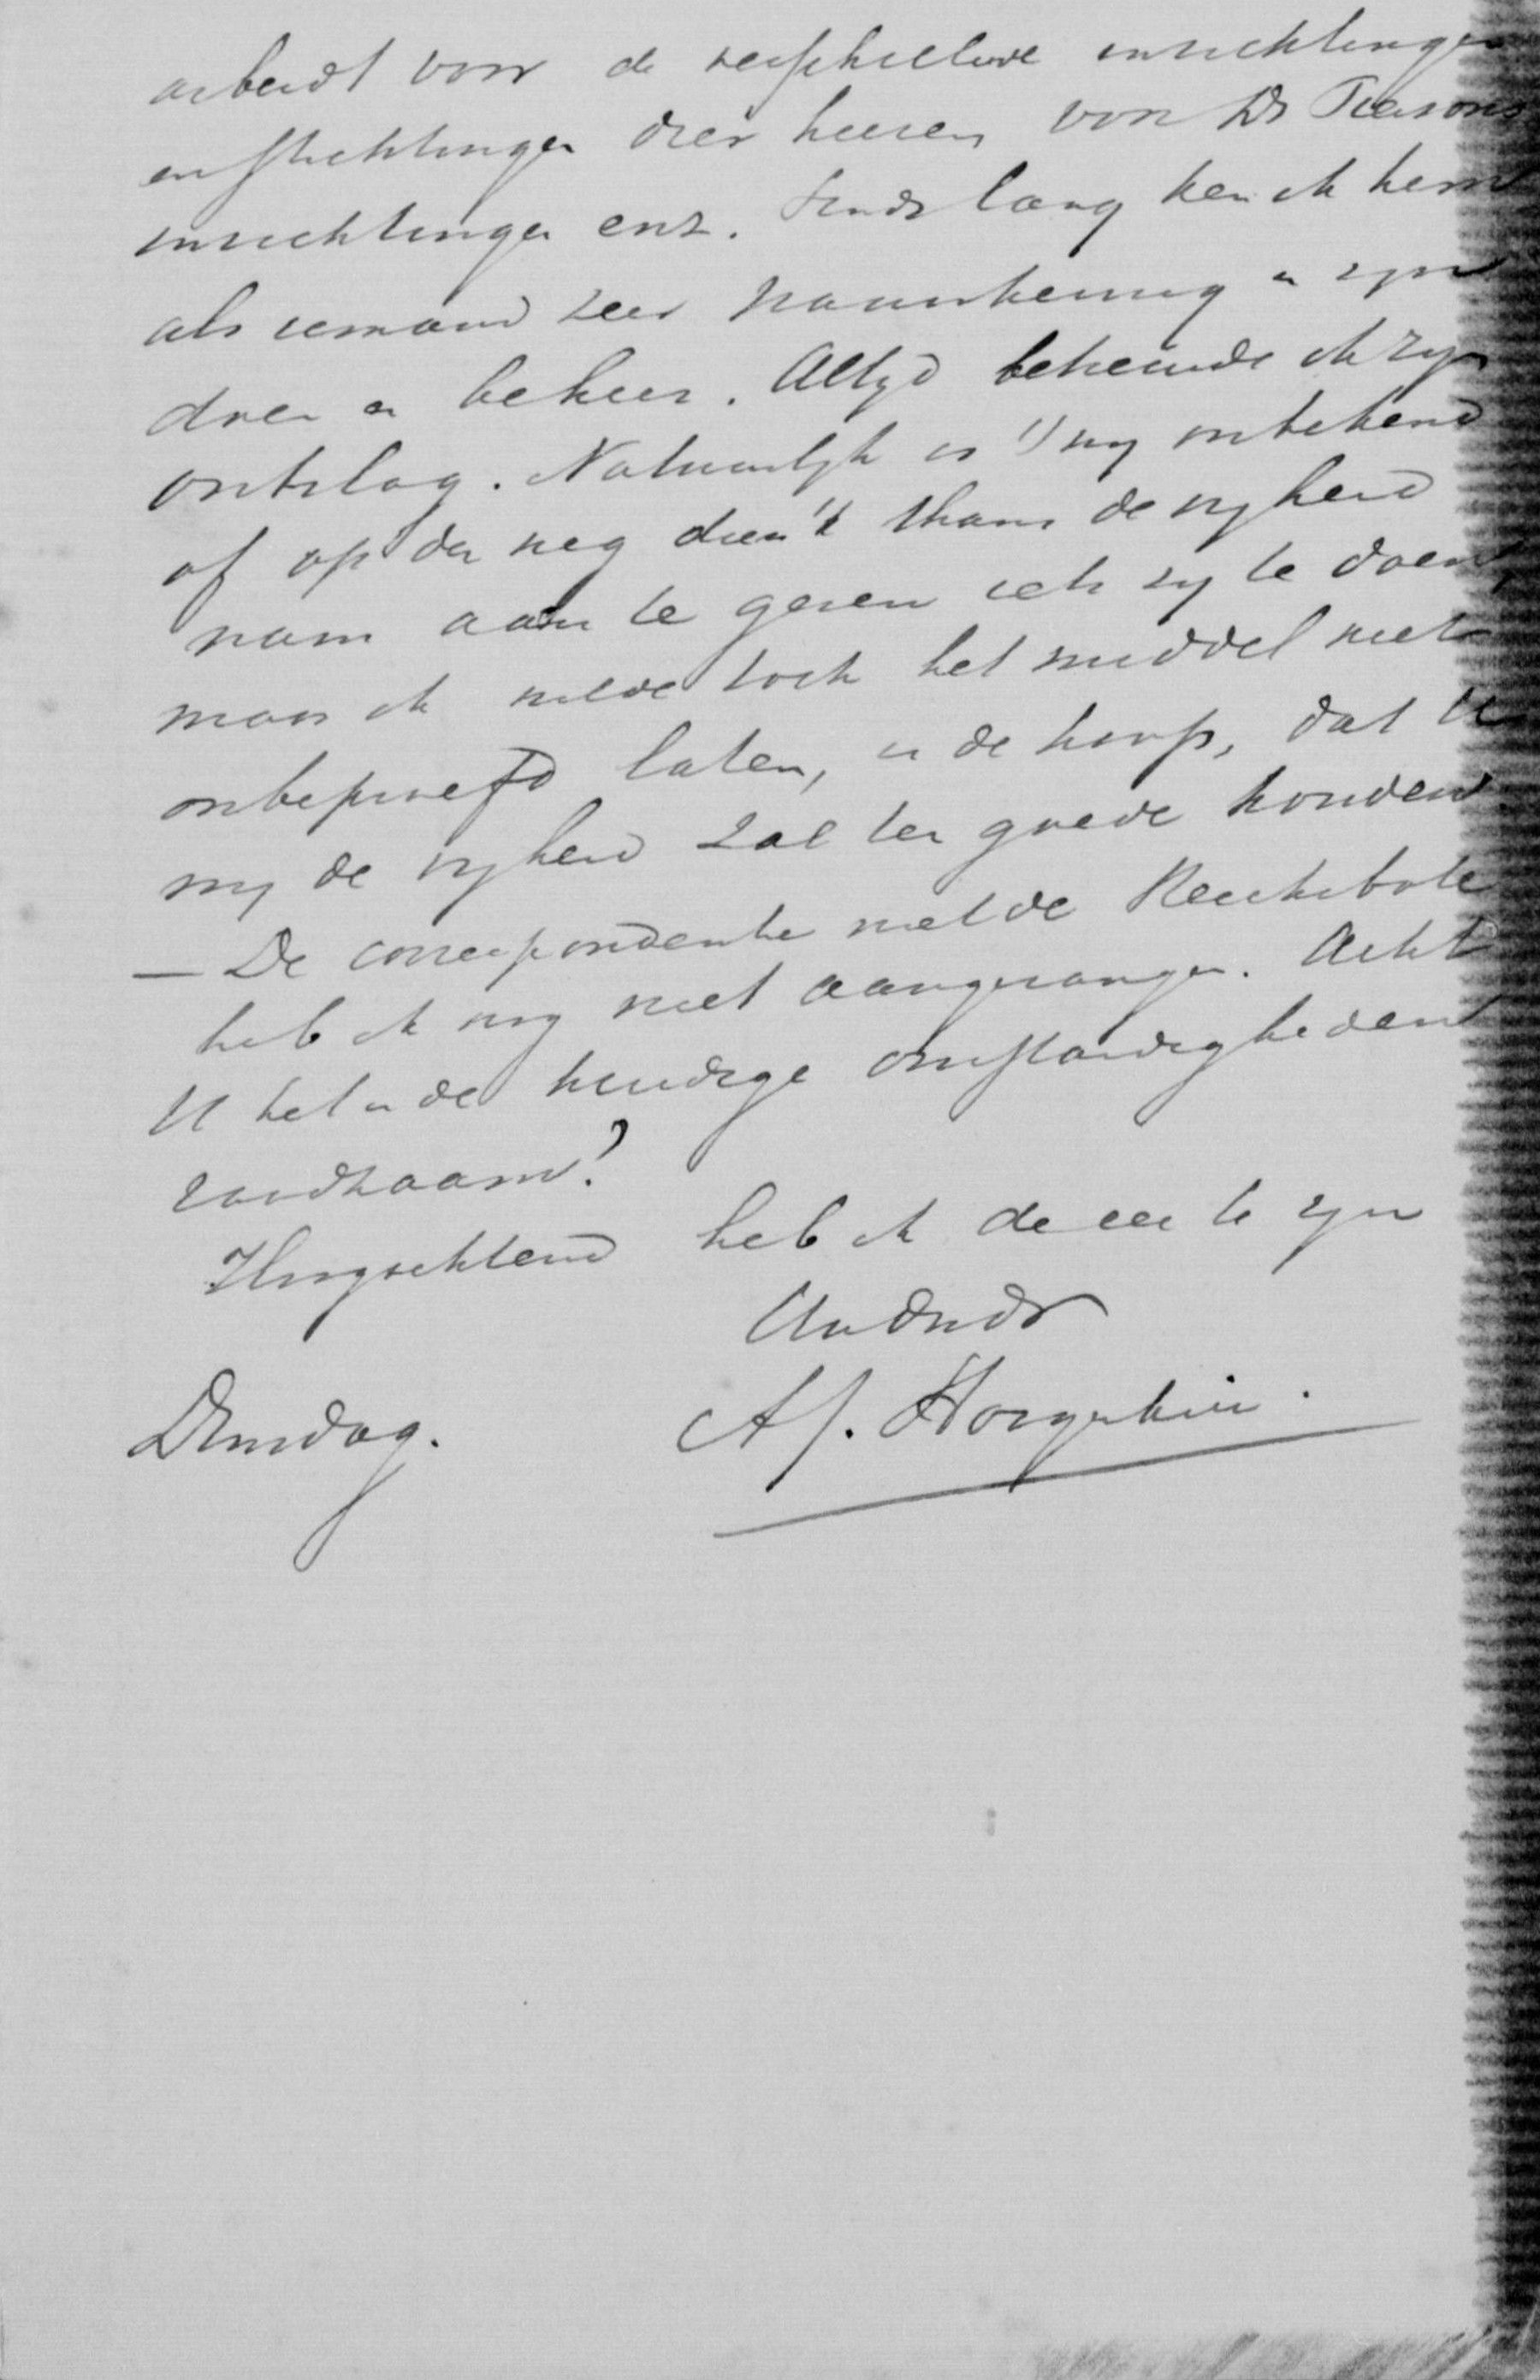 arbeidt voor de verschillende inrichtingen
en stichtingen dier heeren, voor Ds Piersons
inrichtingen enz. Sinds lang ken ik hem
als iemand zeer nauwkeurig in zijn
doen en beheer. Altijd betreurde ik zijn
ontslag. Natuurlijk is 't mij onbekend
of op den weg dien 'k thans de vrijheid
nam aan te geven iets zij te doen,
maar ik wilde toch het middel niet
onbeproefd laten, in de hoop, dat U
mij de vrijheid zal ten goede houden
— De correspondentie met de Kerkebode
heb ik nog niet aangevangen. Acht
U het in de huidige omstandigheden
raadzaam?
Hoogachtend heb ik de eer te zijn
Uw dnder
Dinsdag.